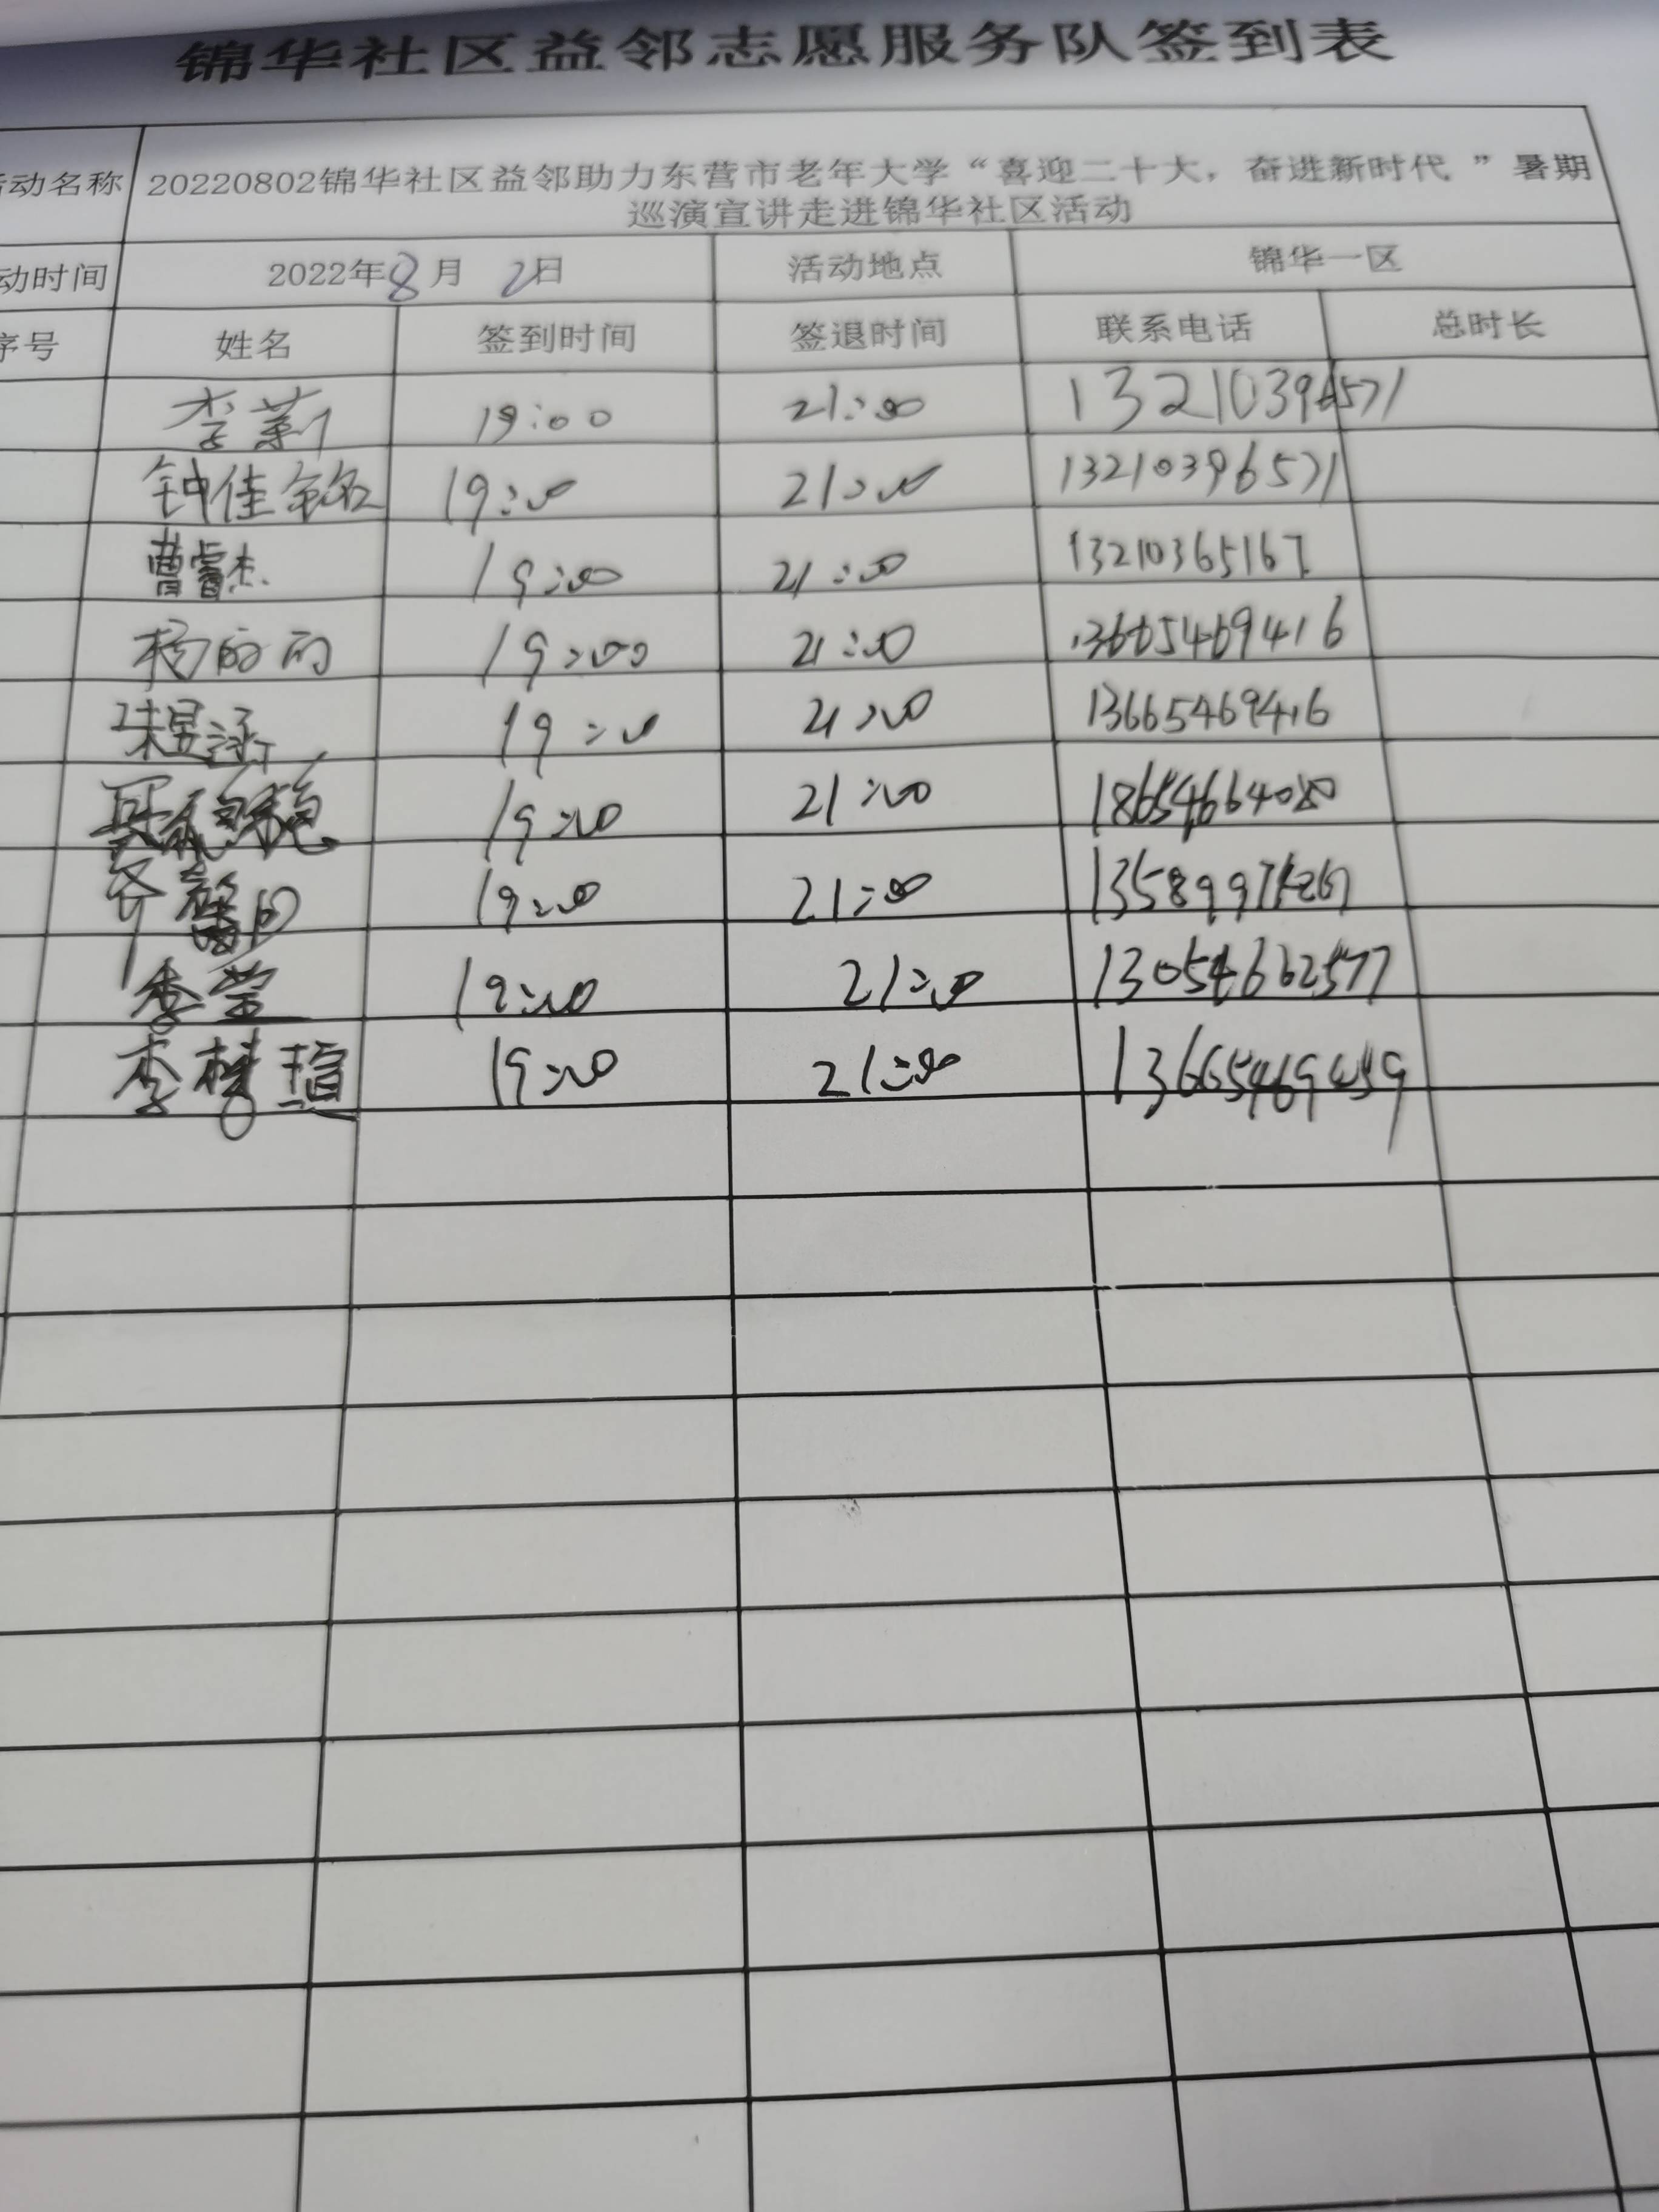 锦华社区益邻志愿服务队签到表
动名称 20220802锦华社区益邻助力东营市老年大学“喜迎二十大，奋进新时代”暑期
巡演宣讲走进锦华社区活动
动时间 2022年8月 2日 活动地点 锦华一区
序号 姓名 签到时间 签退时间 联系电话 总时长
李莉 19:00 21:00 13210396571
钟佳铭 19:00 21:00 13210396571
曹睿杰 19:00 21:00 13210365167
杨 19:00 21:00 13665469416
19:00 21:00 13665469416
19:00 21:00 18654664080
齐馨 19:00 21:00
李莹 19:00 21:00 13054662577
李梦瑄 19:00 21:00 13665469459